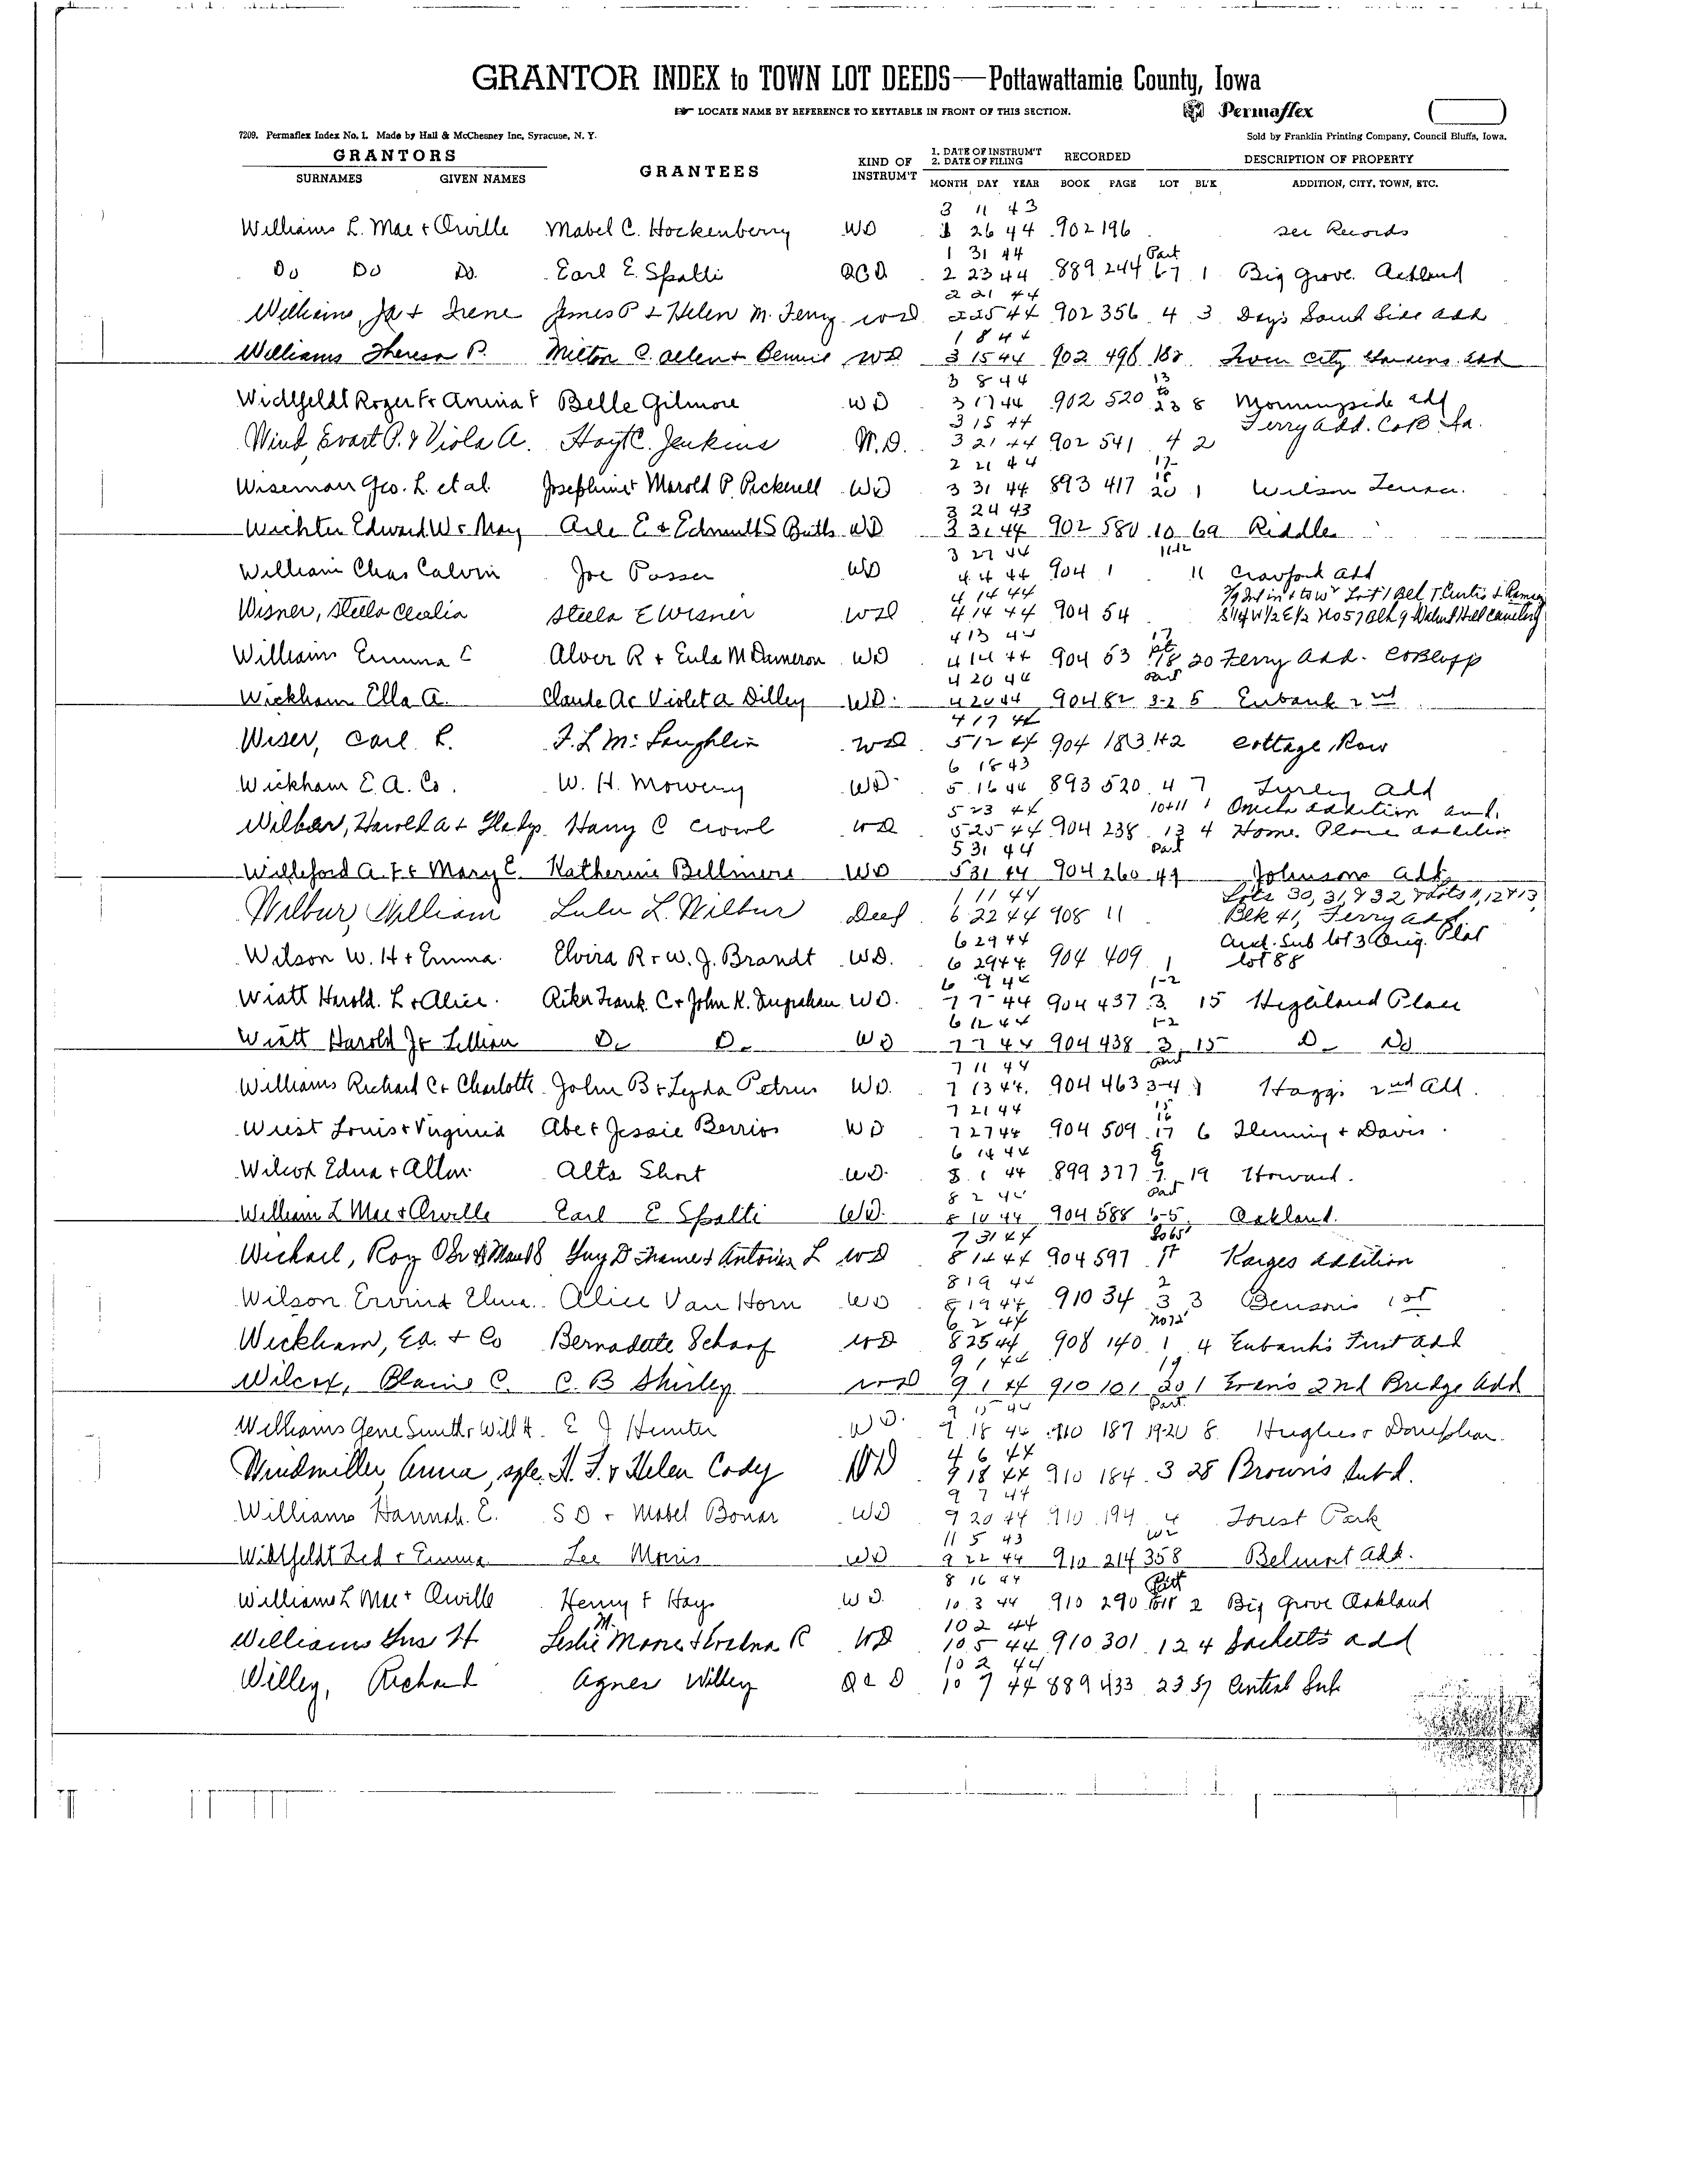 GRANTOR INDEX to TOWN LOT DEEDS—Pottawattamie County, Iowa
LOCATE NAME BY REFERENCE TO KEYTABLE IN FRONT OF THIS SECTION.
Permaflex
7209. Permaflex Index No. 1. Made by Hall & McChesney Inc, Syracuse, N. Y.
Sold by Franklin Printing Company, Council Bluffs, Iowa.
GRANTORS GRANTEES KIND OF INSTRUM'T 1. DATE OF INSTRUM'T 2. DATE OF FILING RECORDED DESCRIPTION OF PROPERTY
SURNAMES GIVEN NAMES MONTH DAY YEAR BOOK PAGE LOT BL'K ADDITION, CITY, TOWN, ETC.
3 11 43
Williams L. Mae + Orville Mabel C. Hockenberry WD 1 26 44 902 196 see Records
1 31 44 Part
Do Do Do. Earl E. Spalti QCD 2 23 44 889 244 67 1 Big Grove. Oakland
2 21 44
Williams, Ja + Irene James P & Helen M. Terry WD 2 25 44 902 356 4 3 Days South Side add
1 8 44
Williams Theresa P. Milton C. Allen + Bennie WD 3 15 44 902 498 182 Twin City Gardens add
3 8 44 13 to
Belle Gilmore WD 3 17 44 902 520 23 8 Morningside add
3 15 44 Ferry Add. Co B Ia.
Wind, Evart P. & Viola A. Hoyt C. Jenkins W.D. 3 21 44 902 541 4 2
2 21 44 17
Wiseman Geo. L. et al Josephine + Marold P. Pickerell WD 3 31 44 893 417 18 20 1 Wilson Terrace.
3 24 43
Edward W & May Arle E + Edmutt S Butts WD 3 31 44 902 580 10 69 Riddles
3 27 44 11-12
William Chas Calvin Joe Posser WD 4 4 44 904 1 11 Crawford Add
4 14 44
Wisner, Stella Cecelia Stella E Wisner WD 4 14 44 904 54 Blk 9 Walnut Hill Cemetery
4 13 44 17
Williams Emma C Alver R + Eula M Dameron WD 4 14 44 904 63 Pt 18 20 Ferry Add. CoBluff
4 20 44 Part
Wickham Ella A. Claude A & Violet A Dilley WD. 4 20 44 904 82 3-2 5 Eubank 2nd
4 17 44
Wiser, Carl R. F. L McLaughlin WD 5 12 44 904 183 142 Cottage Row
6 18 43
Wickham E. A. Co. W. H. Mowery WD 5 16 44 893 520 4 7 Turley Add
5 23 44 10+11 1 Omaha addition and.
Wilber, Harold A + Gladys Harry C Crowl WD 5 25 44 904 238 13 4 Home. Place addition
5 31 44 Part
Williford A. F & Mary E. Katherine Bellmere WD 5 31 44 904 260 49 Johnsons Add.
1 11 44 Lots 30, 31, & 32 & Lots 11, 12 & 13
Wilbur, William Lulu L. Wilbur Deed 6 22 44 908 11 Blk 41, Ferry add
6 29 44 Aud. Sub lot 3 Orig. Plat
Wilson W. H + Emma. Elvira R + W. J. Brandt WD. 6 29 44 904 409 1 lot 88
6 9 44 1-2
Wiatt Harold. L + Alice. Riker Frank. C + John K. WD. 7 7 44 904 437 3 15 Highland Place
6 12 44 1-2
Wiatt Harold Jr Lillian Do Do WD 7 7 44 904 438 3 15 Do Do
7 11 44 Part
Williams Richard C + Charlotte John B + Lyda Petrus WD. 7 13 44 904 463 3-4 9 Haggs 2nd Add.
7 21 44 15 16
Wiest Louis + Virginia Abe + Jessie Berrios WD 7 27 44 904 509 17 6 Fleming + Davis
6 14 44
Wilcox Edna + Allen Alta Short WD. 8 1 44 899 377 7 19 Howard.
8 2 44 Part
William L Mae + Orville Earl E Spalti WD. 8 10 44 904 588 6-5 Oakland.
7 31 44 So 65'
Wichael, Roy Guy D + Antonia L WD 8 14 44 904 597 1st Karges addition
8 19 44 2
Wilson Ervin + Elma. Alice Van Horn WD 8 19 44 910 34 3 3 Bensons 1st
6 2 44
Wickham, Ea. + Co Bernadette Scharf WD 8 25 44 908 140 1 4 Eubank's First add
9 1 44 19
Wilcox, Blaine C. C. B Shirley WD 9 1 44 910 101 20 1 Evan's 2nd Bridge Add
9 15 44 Part
Williams Gene Smith & Will H. E J Hunter WD. 9 18 44 910 187 19-20 8 Hughes & Doniphan.
4 6 44
Windmiller Anna, sgle. H. F. & Helen Cody WD 9 18 44 910 184 3 28 Brown's Subd.
9 7 44
Williams Hannah. E. S D + Mabel Bonar WD 9 20 44 910 194 4 Forest Park
11 5 43 W 2
Wiltfeldt Fed + Emma Lee Morris WD 9 22 44 910 214 358 Belmont Add.
8 16 44 Part
Williams L Mae + Orville Henry F Hays WD. 10 3 44 910 290 2 Big Grove Oakland
10 2 44
Williams Gus H Leslie M. R WD 10 5 44 910 301 12 4 Sacketts add
10 2 44
Willey, Richard Agnes Willey QCD 10 7 44 889 433 23 57 Central Sub